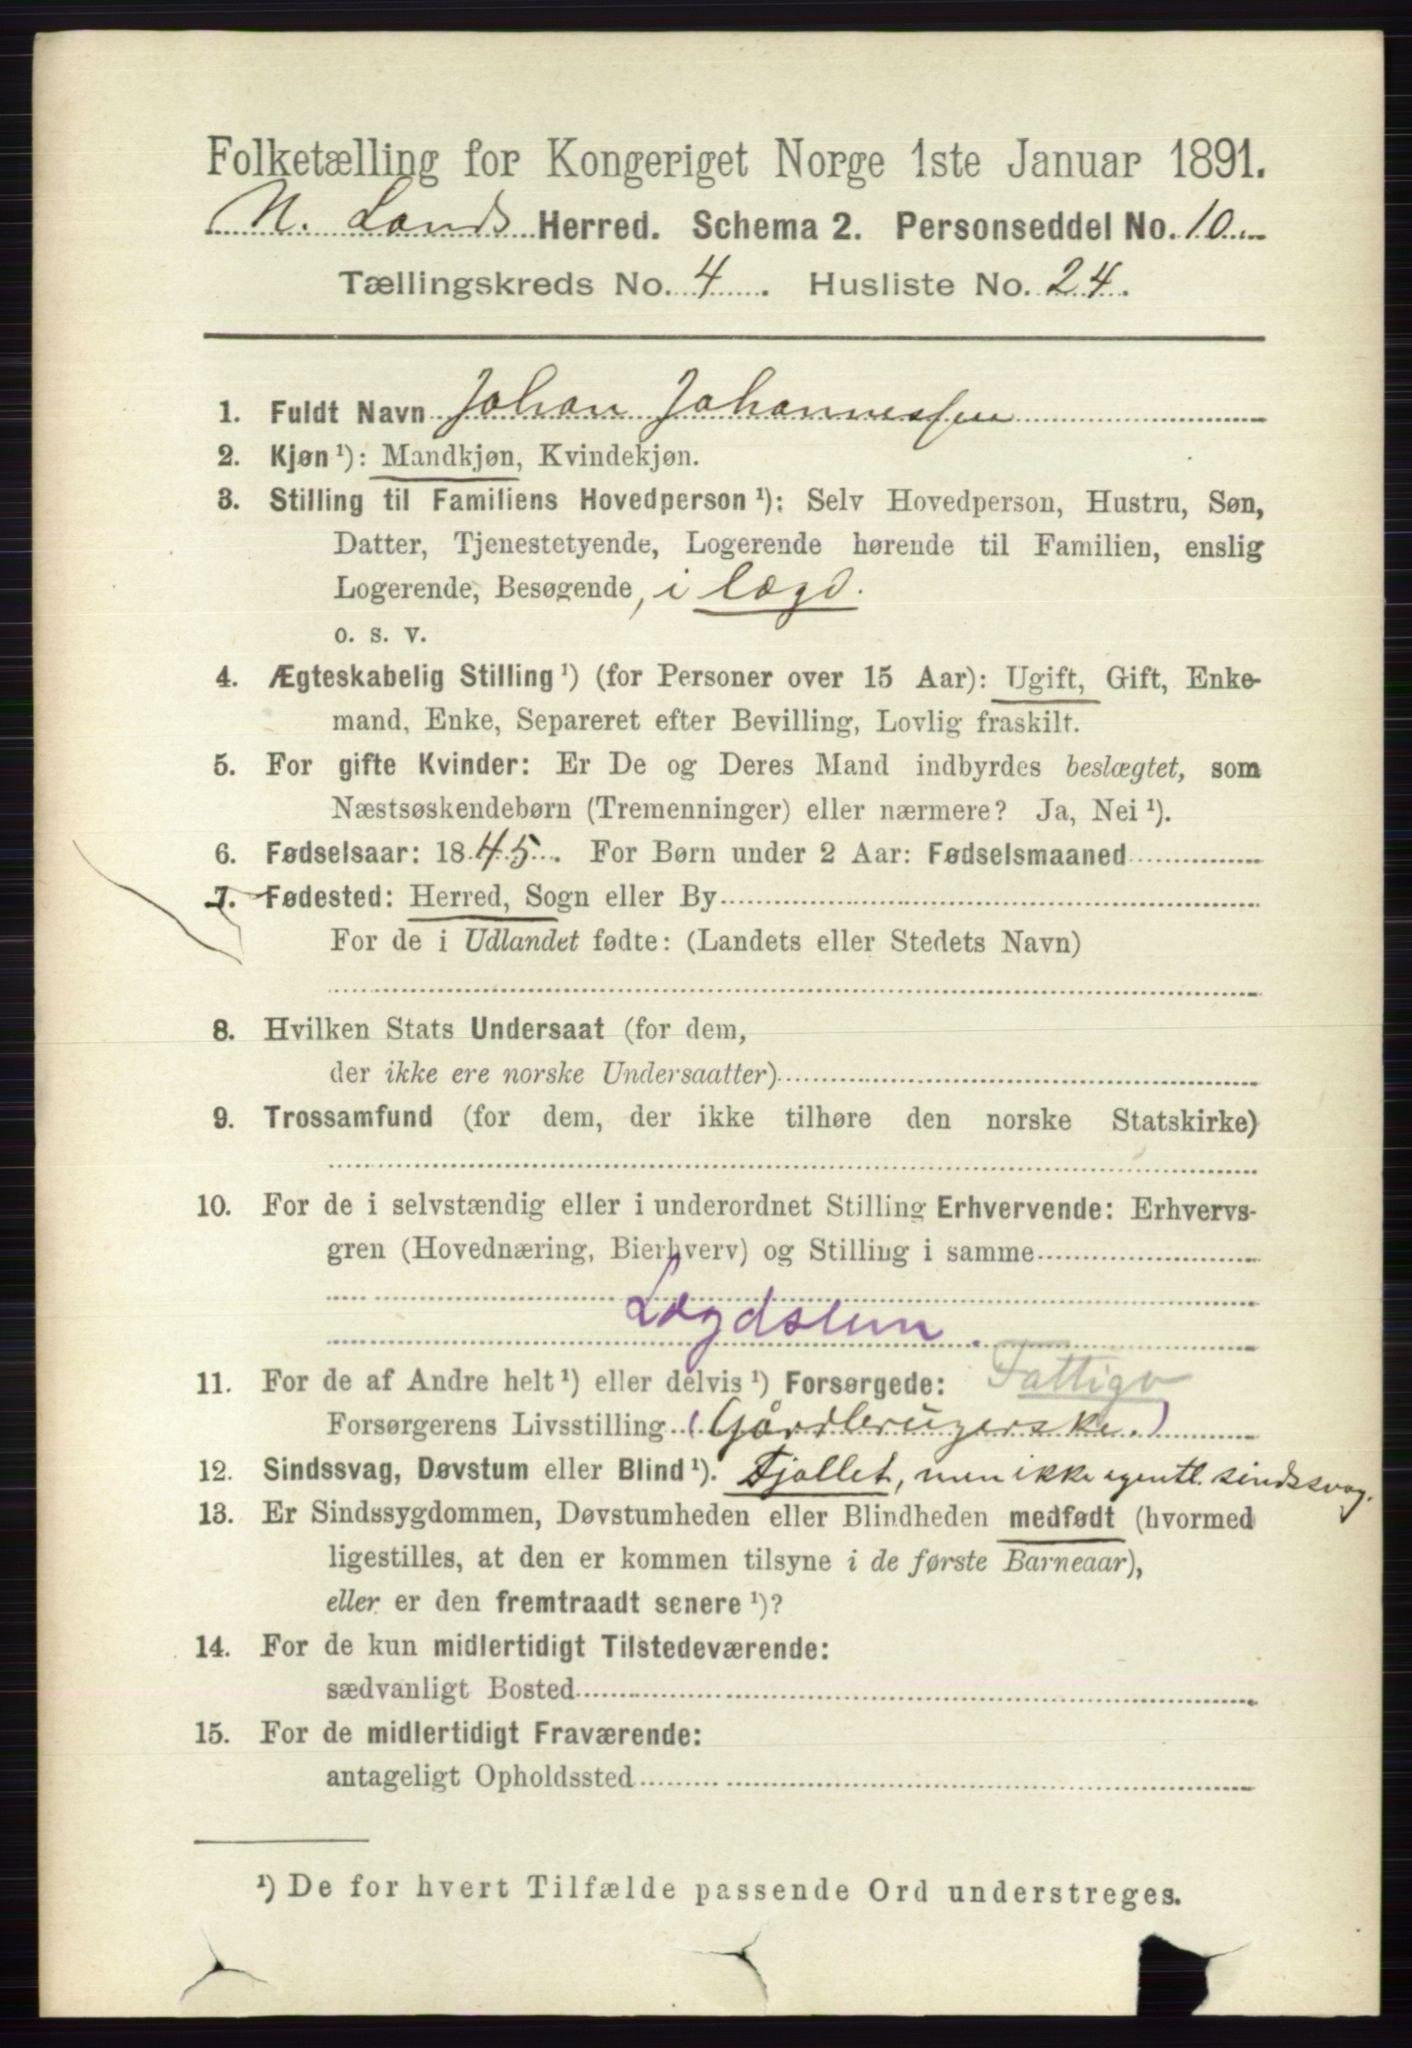 Folketælling for Kongeriget Norge 1ste Januar 1891.
N. Lands Herred. Schema 2. Personseddel No. 10
Tællingskreds No. 4. Husliste No. 24.
1. Fuldt Navn Johan Johannessen
2. Kjøn ¹): Mandkjøn, Kvindekjøn.
3. Stilling til Familiens Hovedperson ¹): Selv Hovedperson, Hustru, Søn,
Datter, Tjenestetyende, Logerende hørende til Familien, enslig
Logerende, Besøgende, i lægd.
o. s. v.
4. Ægteskabelig Stilling ¹) (for Personer over 15 Aar): Ugift, Gift, Enke-
mand, Enke, Separeret efter Bevilling, Lovlig fraskilt.
5. For gifte Kvinder: Er De og Deres Mand indbyrdes beslægtet, som
Næstsøskendebørn (Tremenninger) eller nærmere? Ja, Nei ¹).
6. Fødselsaar: 1845. For Børn under 2 Aar: Fødselsmaaned
7. Fødested: Herred, Sogn eller By
For de i Udlandet fødte: (Landets eller Stedets Navn)
8. Hvilken Stats Undersaat (for dem,
der ikke ere norske Undersaatter)
9. Trossamfund (for dem, der ikke tilhøre den norske Statskirke)
10. For de i selvstændig eller i underordnet Stilling Erhvervende: Erhvervs-
gren (Hovednæring, Bierhverv) og Stilling i samme
Lægdslem.
11. For de af Andre helt ¹) eller delvis ¹) Forsørgede: Fattigv
Forsørgerens Livsstilling (Gårdbrugerske.)
12. Sindssvag, Døvstum eller Blind ¹). Fjollet, men ikke egentl. sindssvag.
13. Er Sindssygdommen, Døvstumheden eller Blindheden medfødt (hvormed
ligestilles, at den er kommen tilsyne i de første Barneaar),
eller er den fremtraadt senere ¹)?
14. For de kun midlertidigt Tilstedeværende:
sædvanligt Bosted
15. For de midlertidigt Fraværende:
antageligt Opholdssted
¹) De for hvert Tilfælde passende Ord understreges.